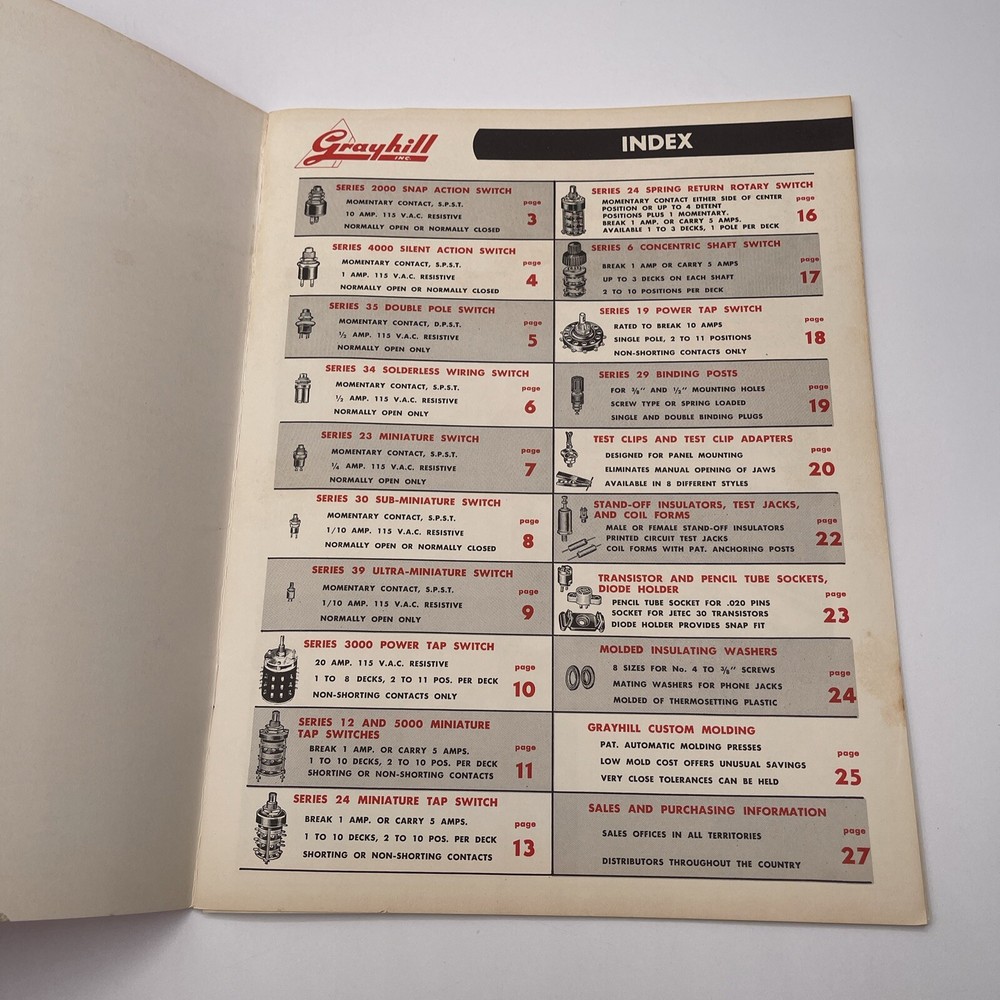 Grayhill
INC.
INDEX
SERIES 2000 SNAP ACTION SWITCH
MOMENTARY CONTACT, S.P.S.T.
10 AMP. 115 V.A.C. RESISTIVE
NORMALLY OPEN OR NORMALLY CLOSED
page
3
SERIES 4000 SILENT ACTION SWITCH
MOMENTARY CONTACT, S.P.S.T.
1 AMP. 115 V.A.C. RESISTIVE
NORMALLY OPEN OR NORMALLY CLOSED
page
4
SERIES 35 DOUBLE POLE SWITCH
MOMENTARY CONTACT, D.P.S.T.
½ AMP. 115 V.A.C. RESISTIVE
NORMALLY OPEN ONLY
page
5
SERIES 34 SOLDERLESS WIRING SWITCH
MOMENTARY CONTACT, S.P.S.T.
½ AMP. 115 V.A.C. RESISTIVE
NORMALLY OPEN ONLY
page
6
SERIES 23 MINIATURE SWITCH
MOMENTARY CONTACT, S.P.S.T.
¼ AMP. 115 V.A.C. RESISTIVE
NORMALLY OPEN ONLY
page
7
SERIES 30 SUB-MINIATURE SWITCH
MOMENTARY CONTACT, S.P.S.T.
1/10 AMP. 115 V.A.C. RESISTIVE
NORMALLY OPEN OR NORMALLY CLOSED
page
8
SERIES 39 ULTRA-MINIATURE SWITCH
MOMENTARY CONTACT, S.P.S.T.
1/10 AMP. 115 V.A.C. RESISTIVE
NORMALLY OPEN ONLY
page
9
SERIES 3000 POWER TAP SWITCH
20 AMP. 115 V.A.C. RESISTIVE
1 TO 8 DECKS, 2 TO 11 POS. PER DECK
NON-SHORTING CONTACTS ONLY
page
10
SERIES 12 AND 5000 MINIATURE
TAP SWITCHES
BREAK 1 AMP. OR CARRY 5 AMPS.
1 TO 10 DECKS, 2 TO 10 POS. PER DECK
SHORTING OR NON-SHORTING CONTACTS
page
11
SERIES 24 MINIATURE TAP SWITCH
BREAK 1 AMP. OR CARRY 5 AMPS.
1 TO 10 DECKS, 2 TO 10 POS. PER DECK
SHORTING OR NON-SHORTING CONTACTS
page
13
SERIES 24 SPRING RETURN ROTARY SWITCH
MOMENTARY CONTACT EITHER SIDE OF CENTER
POSITION OR UP TO 4 DETENT
POSITIONS PLUS 1 MOMENTARY.
BREAK 1 AMP. OR CARRY 5 AMPS.
AVAILABLE 1 TO 3 DECKS, 1 POLE PER DECK
page
16
SERIES 6 CONCENTRIC SHAFT SWITCH
BREAK 1 AMP OR CARRY 5 AMPS
UP TO 3 DECKS ON EACH SHAFT
2 TO 10 POSITIONS PER DECK
page
17
SERIES 19 POWER TAP SWITCH
RATED TO BREAK 10 AMPS
SINGLE POLE, 2 TO 11 POSITIONS
NON-SHORTING CONTACTS ONLY
page
18
SERIES 29 BINDING POSTS
FOR ⅜" AND ½" MOUNTING HOLES
SCREW TYPE OR SPRING LOADED
SINGLE AND DOUBLE BINDING PLUGS
page
19
TEST CLIPS AND TEST CLIP ADAPTERS
DESIGNED FOR PANEL MOUNTING
ELIMINATES MANUAL OPENING OF JAWS
AVAILABLE IN 8 DIFFERENT STYLES
page
20
STAND-OFF INSULATORS, TEST JACKS,
AND COIL FORMS
MALE OR FEMALE STAND-OFF INSULATORS
PRINTED CIRCUIT TEST JACKS
COIL FORMS WITH PAT. ANCHORING POSTS
page
22
TRANSISTOR AND PENCIL TUBE SOCKETS,
DIODE HOLDER
PENCIL TUBE SOCKET FOR .020 PINS
SOCKET FOR JETEC 30 TRANSISTORS
DIODE HOLDER PROVIDES SNAP FIT
page
23
MOLDED INSULATING WASHERS
8 SIZES FOR No. 4 TO ⅜" SCREWS
MATING WASHERS FOR PHONE JACKS
MOLDED OF THERMOSETTING PLASTIC
page
24
GRAYHILL CUSTOM MOLDING
PAT. AUTOMATIC MOLDING PRESSES
LOW MOLD COST OFFERS UNUSUAL SAVINGS
VERY CLOSE TOLERANCES CAN BE HELD
page
25
SALES AND PURCHASING INFORMATION
SALES OFFICES IN ALL TERRITORIES
DISTRIBUTORS THROUGHOUT THE COUNTRY
page
27